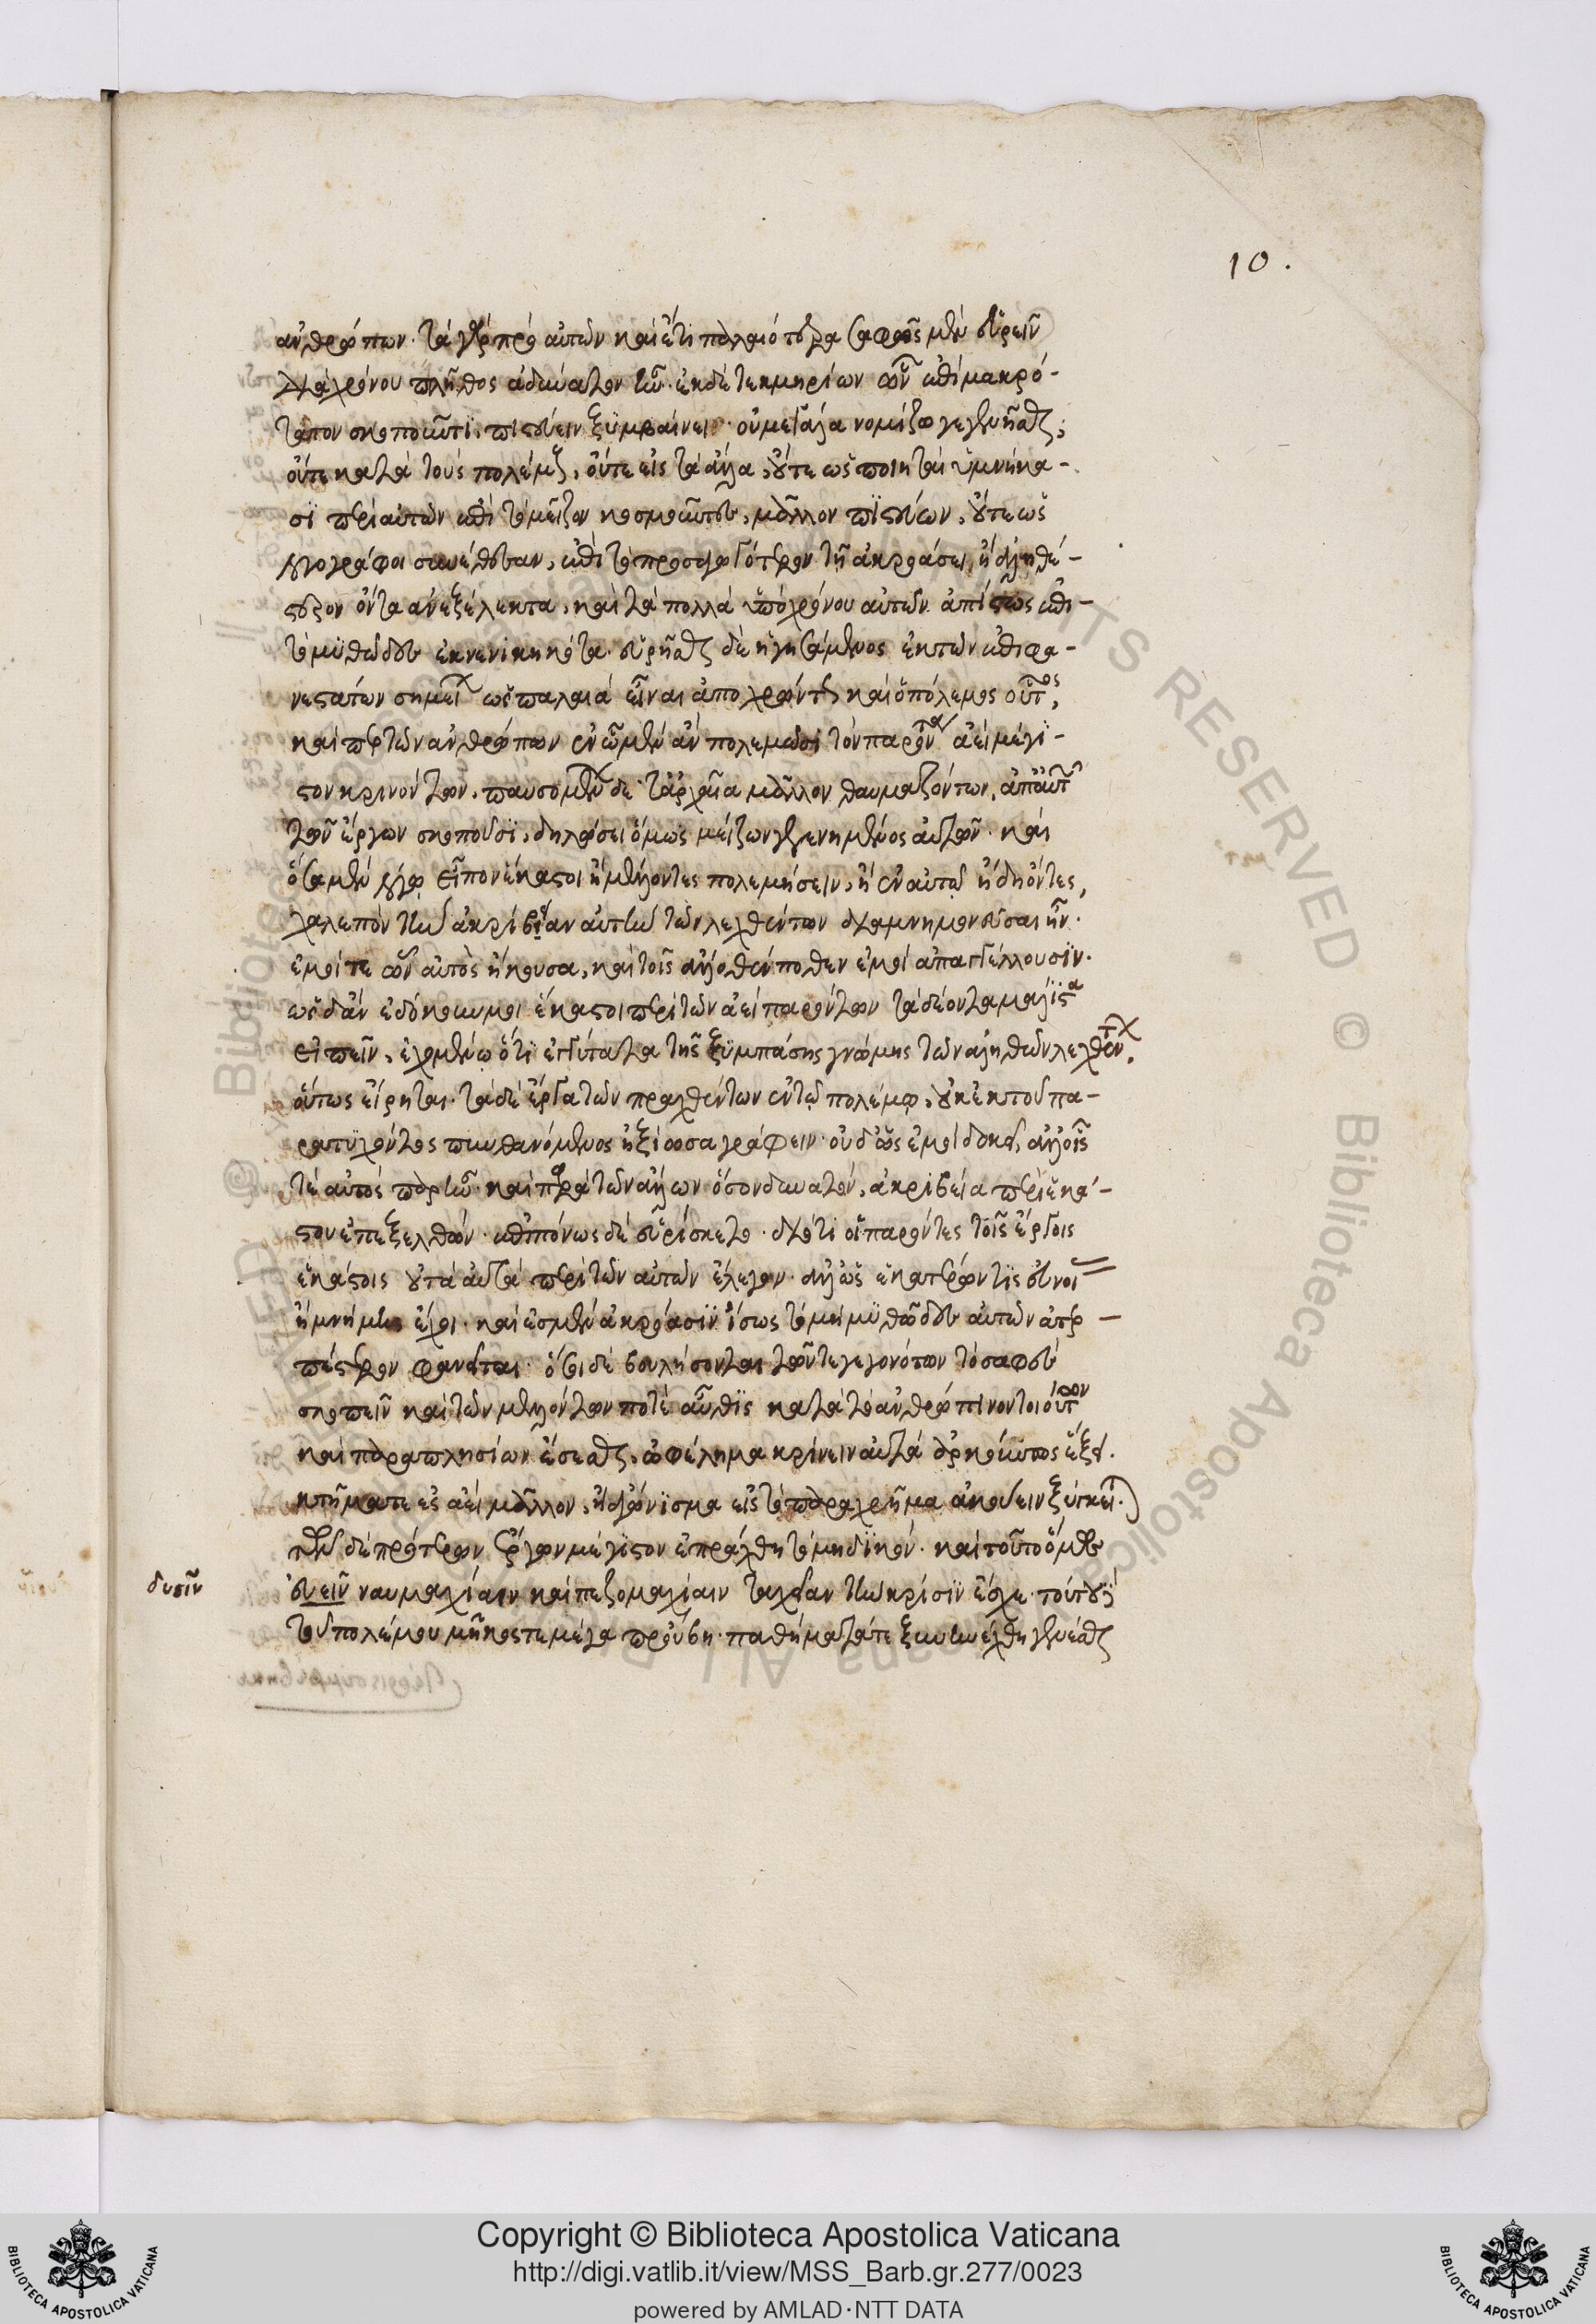 10.
ἀνθρώπων· τὰ γὰρ πρὸ αὐτῶν καὶ ἔτι παλαιότερα σαφῶς μὲν εὑρεῖν
διὰ χρόνου πλῆθος ἀδύνατον ἦν· ἐκ δὲ τεκμηρίων ὧν ἐπὶ μακρό-
τατον σκοποῦντι, πιστεύειν ξυμβαίνει· οὐ μεγάλα νομίζω γεγενῆσθαι,
οὔτε κατὰ τοὺς πολέμους, οὔτε εἰς τὰ ἄλλα, οὔτε ὡς ποιηταὶ ὑμνήκα-
σι περὶ αὐτῶν ἐπὶ τὸ μεῖζον κοσμοῦντες, μᾶλλον πιστεύων, οὔτε ὡς
λογογράφοι συνέθεσαν, ἐπὶ τὸ προσαγωγότερον τῇ ἀκροάσει, ἢ ἀληθέ-
στερον ὄντα ἀνεξέλεκτα, καὶ τὰ πολλὰ ὑπὸ χρόνου αὐτῶν ἀπίστως ἐπὶ
τὸ μυθῶδες ἐκνενικηκότα· εὑρῆσθαι δὲ ἡγησάμενος ἐκ τῶν ἐπιφα-
νεστάτων σημείων ὡς παλαιὰ εἶναι ἀποχρώντως καὶ ὁ πόλεμος οὗτος,
καίπερ τῶν ἀνθρώπων ἐν ᾧ μὲν ἂν πολεμῶσι τὸν παρόντα ἀεὶ μέγι-
στον κρινόντων, παυσαμένων δὲ τὰ ἀρχαῖα μᾶλλον θαυμαζόντων, ἀπ' αὐτῶν
τῶν ἔργων σκοποῦσι, δηλώσει ὅμως μείζων γεγενημένος αὐτῶν· καὶ
ὅσα μὲν λόγῳ εἶπον ἕκαστοι ἢ μέλλοντες πολεμήσειν, ἢ ἐν αὐτῷ ἤδη ὄντες,
χαλεπὸν τὴν ἀκρίβειαν αὐτὴν τῶν λεχθέντων διαμνημονεῦσαι ἦν·
ἐμοί τε ὧν αὐτὸς ἤκουσα, καὶ τοῖς ἄλλοθέν ποθεν ἐμοὶ ἀπαγγέλλουσιν·
ὡς δ' ἂν ἐδόκουν μοι ἕκαστοι περὶ τῶν ἀεὶ παρόντων τὰ δέοντα μάλιστα
εἰπεῖν, ἐχομένῳ ὅτι ἐγγύτατα τῆς ξυμπάσης γνώμης τῶν ἀληθῶν λεχθέντων,
οὕτως εἴρηται· τὰ δὲ ἔργα τῶν πραχθέντων ἐν τῷ πολέμῳ, οὐκ ἐκ τοῦ πα-
ρατυχόντος πυνθανόμενος ἠξίωσα γράφειν· οὐδ' ὡς ἐμοὶ δοκεῖ, ἀλλ' οἷς
τὲ αὐτὸς παρῆν· καὶ παρὰ τῶν ἄλλων ὅσον δυνατόν, ἀκριβείᾳ περὶ ἑκά-
στου ἐπεξελθών· ἐπιπόνως δὲ εὑρίσκετο· διότι οἱ παρόντες τοῖς ἔργοις
ἑκάστοις οὐ τὰ αὐτὰ περὶ τῶν αὐτῶν ἔλεγον· ἀλλ' ὡς ἑκατέρων τὶς εὐνοίας
ἢ μνήμης ἔχοι· καὶ ἐς μὲν ἀκρόασιν ἴσως τὸ μὴ μυθῶδες αὐτῶν ἀτερ-
πέστερον φανεῖται· ὅσοι δὲ βουλήσονται τῶν τε γεγονότων τὸ σαφὲς
σκοπεῖν καὶ τῶν μελλόντων ποτὲ αὖθις κατὰ τὸ ἀνθρώπινον τοιούτων
καὶ παραπλησίων ἔσεσθαι, ὠφέλημα κρίνειν αὐτὰ ἀρκούντως ἕξει.
κτῆμα τε ἐς ἀεὶ μᾶλλον, ἢ ἀγώνισμα εἰς τὸ παραχρῆμα ἀκούειν ξύγκειται.
τῶν δὲ πρότερον ἔργων μέγιστον ἐπράχθη τὸ μηδικόν· καὶ τοῦτο ὅμως
δυεῖν ναυμαχίαιν καὶ πεζομαχίαιν ταχεῖαν τὴν κρίσιν ἔσχε· τούτου δὲ
τοῦ πολέμου μῆκος τε μέγα προύβη· παθήματά τε ξυνηνέχθη γενέσθαι
δυσὶν